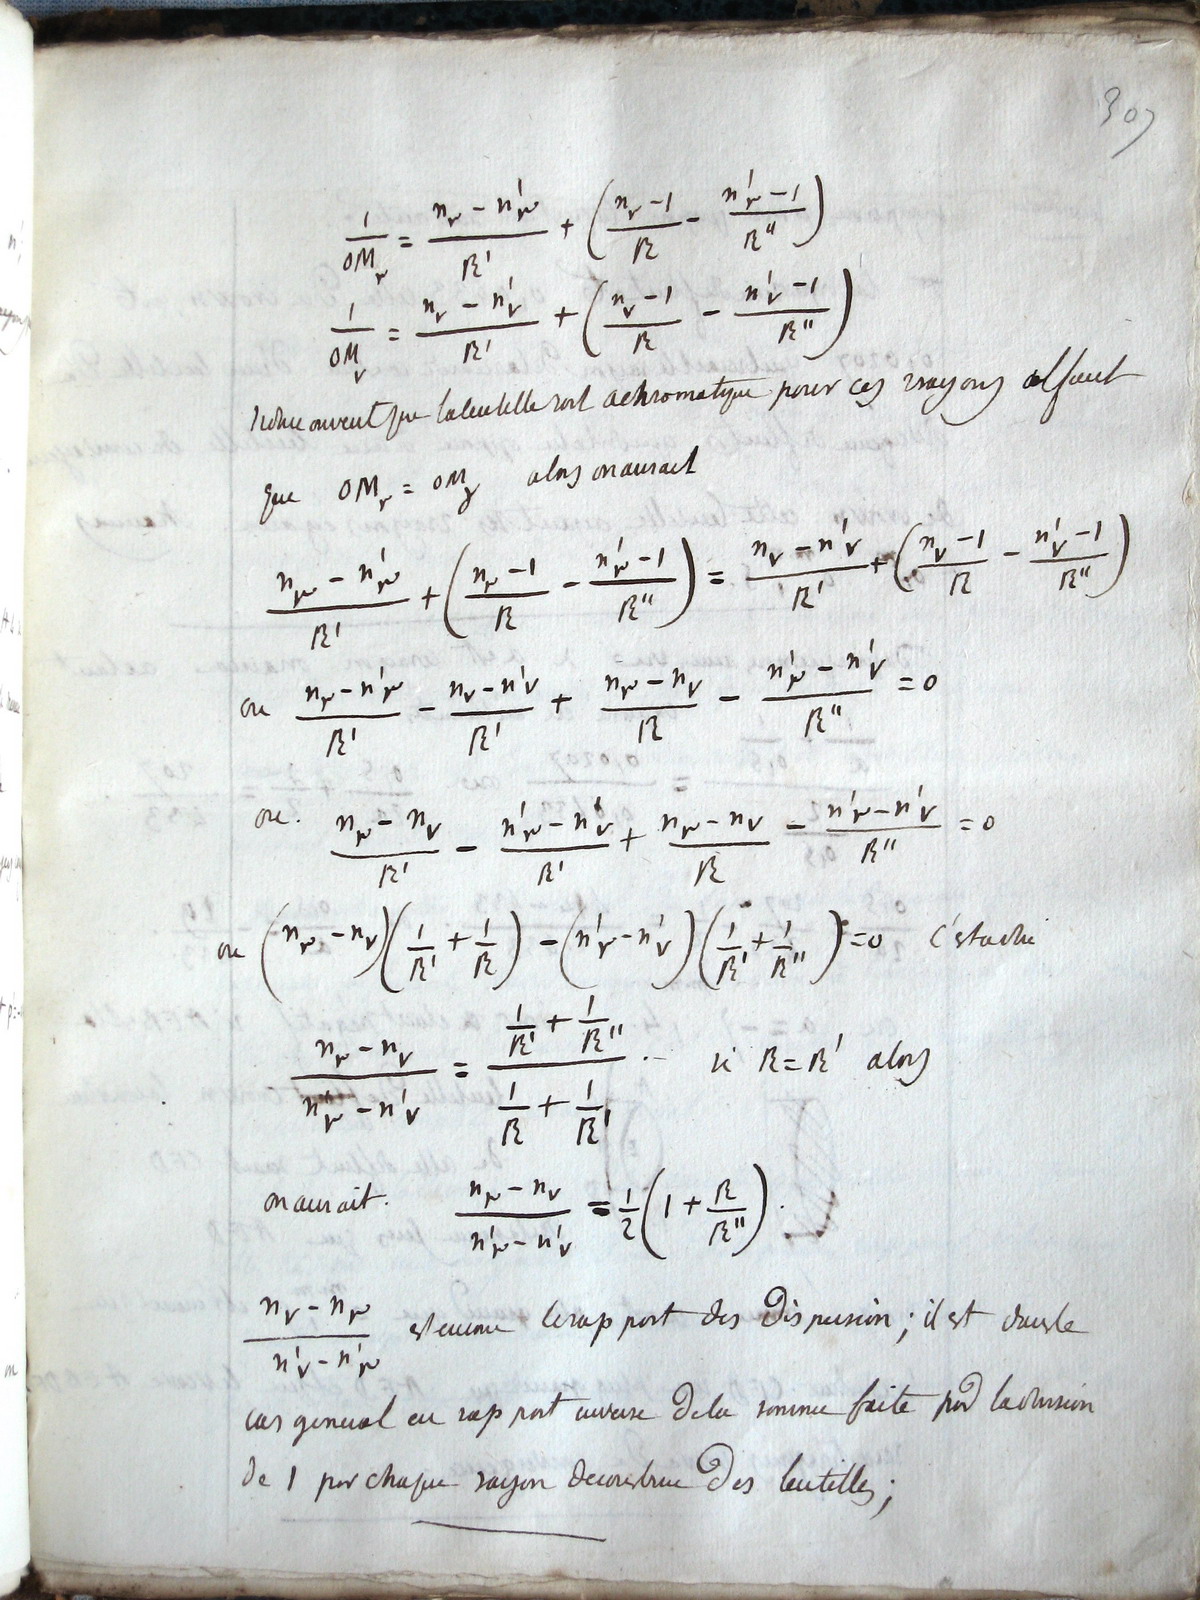 307
1/OM_r = (n_r – n'_r)/R' + ( (n_r – 1)/R – (n'_r – 1)/R'' )
1/OM_v = (n_v – n'_v)/R' + ( (n_v – 1)/R – (n'_v – 1)/R'' )
que la lentille soit achromatique pour ces rayons il faut
que OM_r = OM_v alors on aurait
(n_r – n'_r)/R' + ( (n_r – 1)/R – (n'_r – 1)/R'' ) = (n_v – n'_v)/R' + ( (n_v – 1)/R – (n'_v – 1)/R'' )
ou (n_r – n'_r)/R' – (n_v – n'_v)/R' + (n_r – n_v)/R – (n'_r – n'_v)/R'' = 0
ou. (n_r – n_v)/R' – (n'_r – n'_v)/R' + (n_r – n_v)/R – (n'_r – n'_v)/R'' = 0
ou (n_r – n_v)(1/R' + 1/R) – (n'_r – n'_v)(1/R' + 1/R'') = 0 c'est a dire
(n_r – n_v)/(n'_r – n'_v) = (1/R' + 1/R'')/(1/R + 1/R') si R = R' alors
on aurait. (n_r – n_v)/(n'_r – n'_v) = 1/2 (1 + R/R'').
(n_v – n_r)/(n'_v – n'_r) est le rapport des dispersion ; il est dans le
cas general en rapport inverse de la somme faite par la division
de 1 par chaque rayon de courbure des lentilles ;